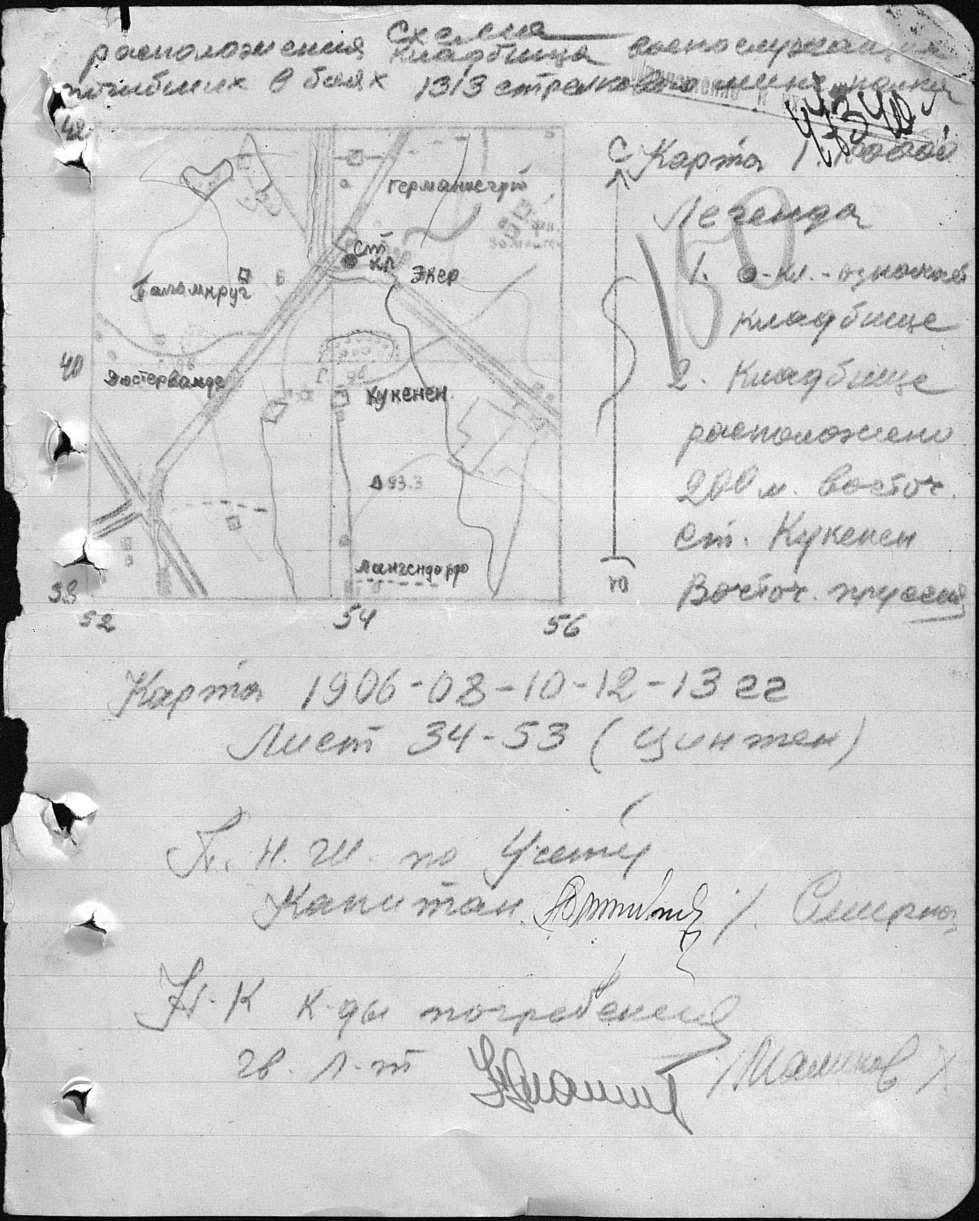 Схема
расположения кладбища военнослужащих
погибших в боях 1313 стрелкового полка
4734
Карта 1
С
Легенда
150
1. кл.
кладбище
2. Кладбище
расположено
200 м. восточ.
ст. Кукенен
Восточ. пруссия
Ю
42
40
38
52
54
56
Германсгрт
ст
кл
Экер
Паламкруг
Б
Г
Кукенен
93.3
Лангендорф
Карта 1906-08-10-12-13 гг
Лист 34-53 (Цинтен)
П. Н. Ш. по Учету
Капитан / Смирнов
Н-К к-ды погребения
гв. л-т /Маликов/